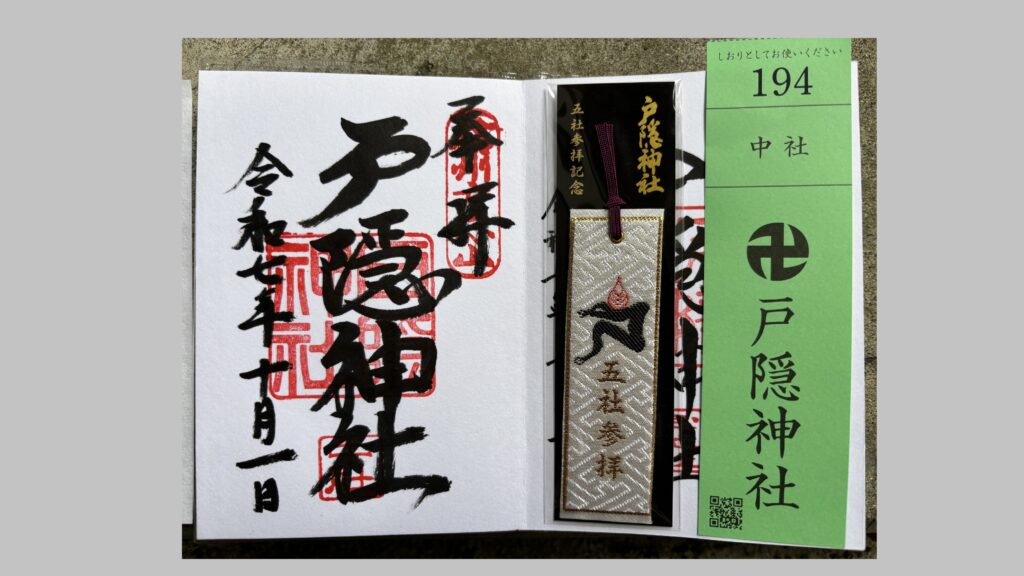 奉拝
戸隠神社
令和七年十月一日
戸隠神社
五社参拝記念
五社参拝
しおりとしてお使いください
194
中社
戸隠神社